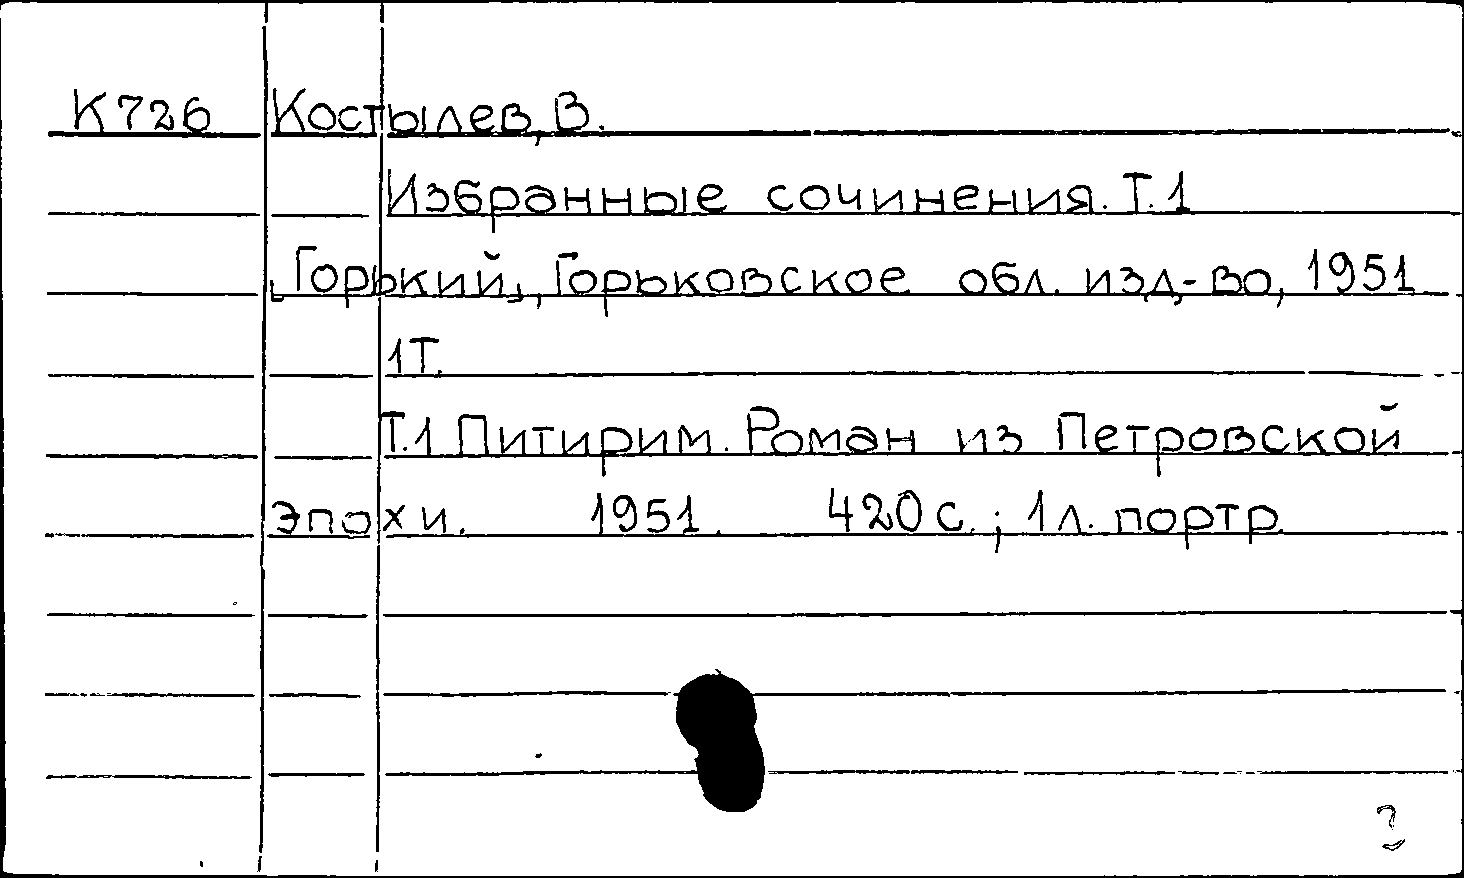 К726 Костылев, В.
Избранные сочинения. Т.1
„Горький", Горьковское обл. изд-во, 1951
1Т.
Т.1 Питирим. Роман из Петровской
эпохи. 1951. 420 с.; 1 л. портр.